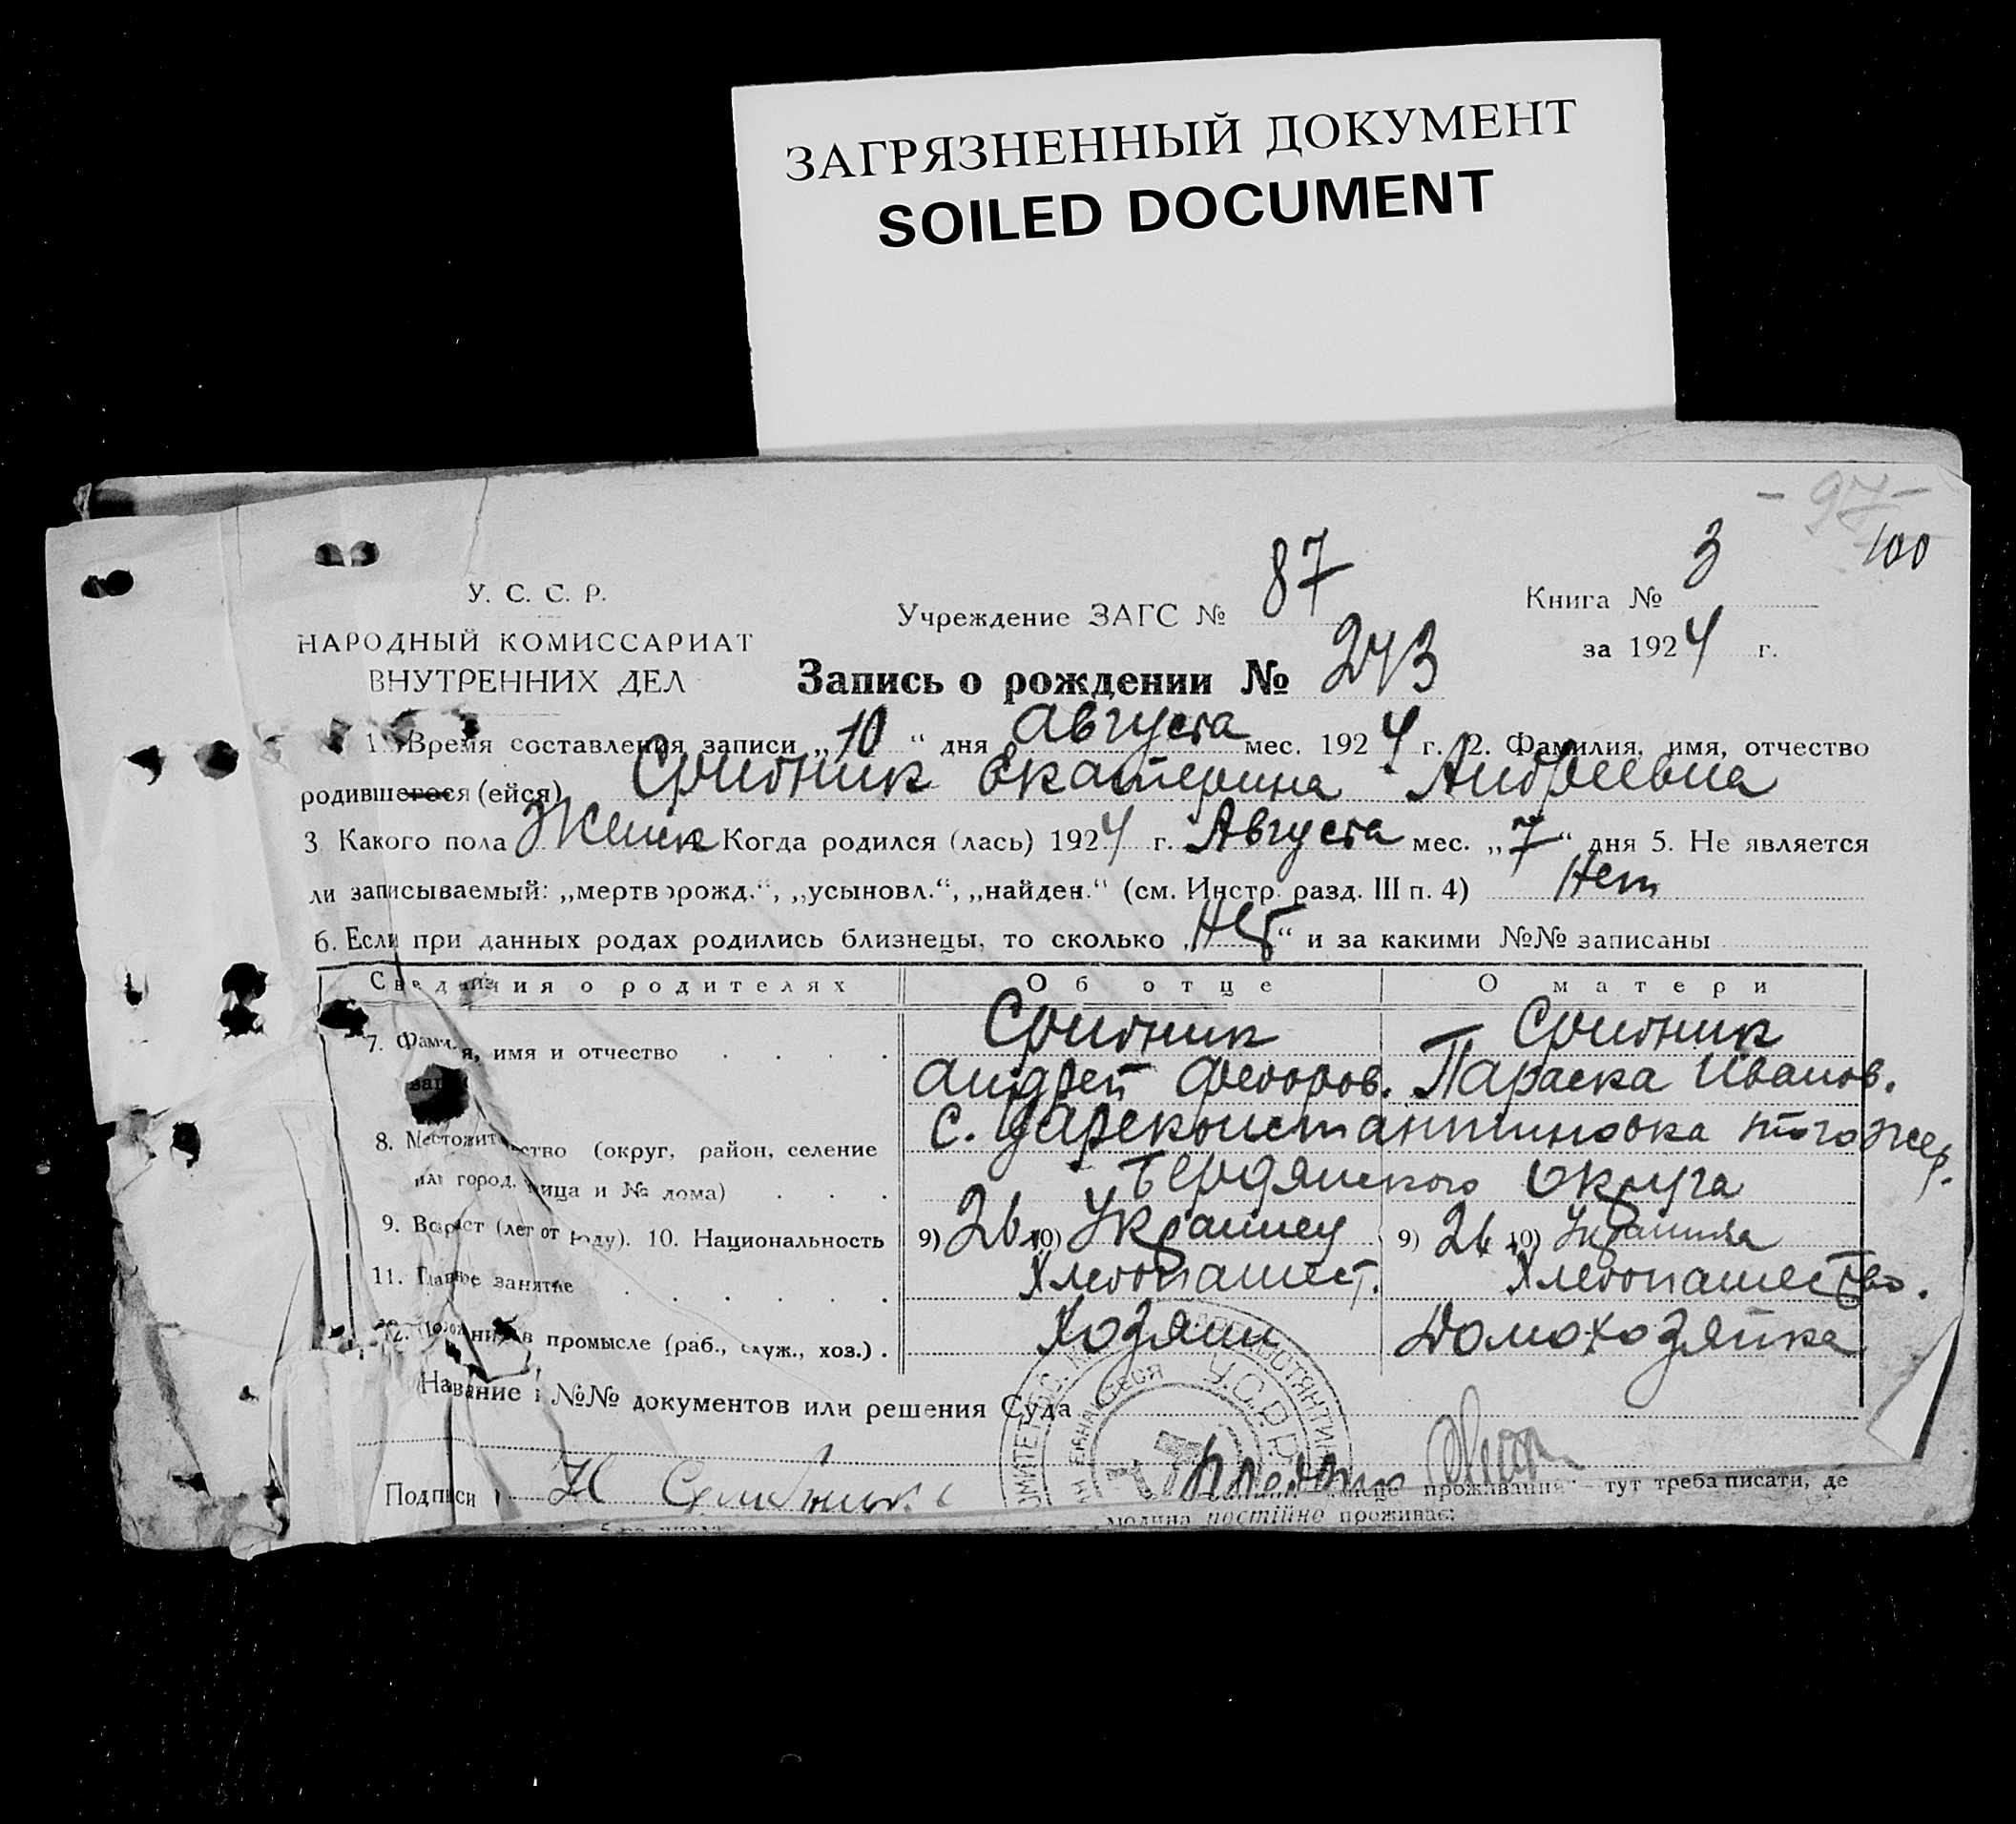 ЗАГРЯЗНЕННЫЙ ДОКУМЕНТ
SOILED DOCUMENT
- 97 -
100
У. С. С. Р.
НАРОДНЫЙ КОМИССАРИАТ
ВНУТРЕННИХ ДЕЛ
Учреждение ЗАГС № 87
Книга № 3
за 1924 г.
Запись о рождении № 243
1. Время составления записи „10“ дня Августа мес. 1924 г. 2. Фамилия, имя, отчество
родившегося (ейся) Срибник Екатерина Андреевна
3 Какого пола Женск Когда родился (лась) 1924 г. Августа мес. „7“ дня 5. Не является
ли записываемый: „мертворожд.“, „усыновл.“, „найден.“ (см. Инстр. разд. III п. 4) Нет
6. Если при данных родах родились близнецы, то сколько „Нет“ и за какими №№ записаны
Сведения о родителях Об отце О матери
7. Фамилия, имя и отчество Срибник Срибник
Андрей Федоров. Параска Иванов.
8. (округ, район, селение с. Цареконстантиновка того же р.
или город, лица и № дома) Бердянского округа
9. Возраст (лет от роду). 10. Национальность 9) 26 10) Украинец 9) 26 10) Украинка
11. Главное занятие Хлебопашест. Хлебопашество.
12. в промысле (раб., служ., хоз.) Хозяин Домохозяйка
Название и №№ документов или решения Суда
У.С.Р.Р.
Подписи
проживання — тут треба писати, де
людина постійно проживає: